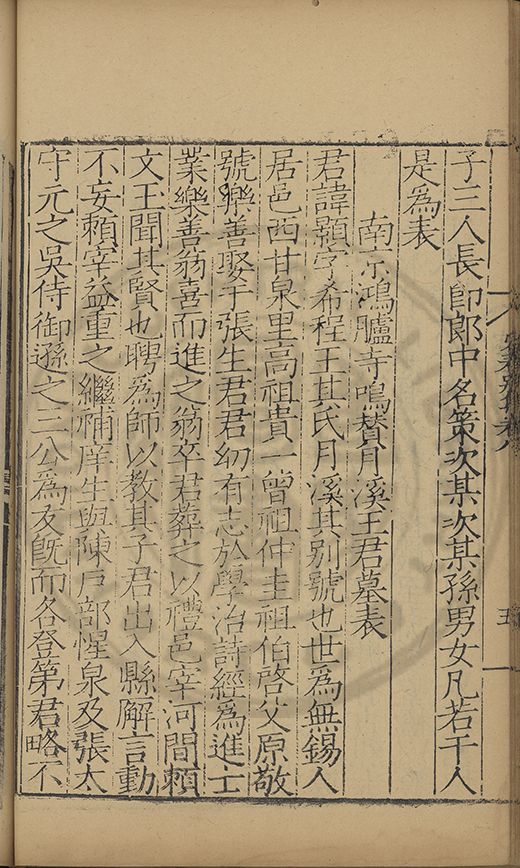 子三人長即郎中名策次某次某孫男女凡若干人
是為表
南京鴻臚寺鳴贊月溪王君墓表
君諱顯字希程王其氏月溪其別號也世為無錫人
居邑西甘泉里高祖貴一曾祖仲圭祖伯啓父原敬
號樂善娶于張生君君幼有志於學治詩經為進士
業樂善翁喜而進之翁卒君葬之以禮邑宰河間賴
文玉聞其賢也聘為師以教其子君出入縣解言動
不妄賴宰益重之繼補庠生與陳戶部惺泉及張太
守元之吳侍御遜之三公為友旣而各登第君略不